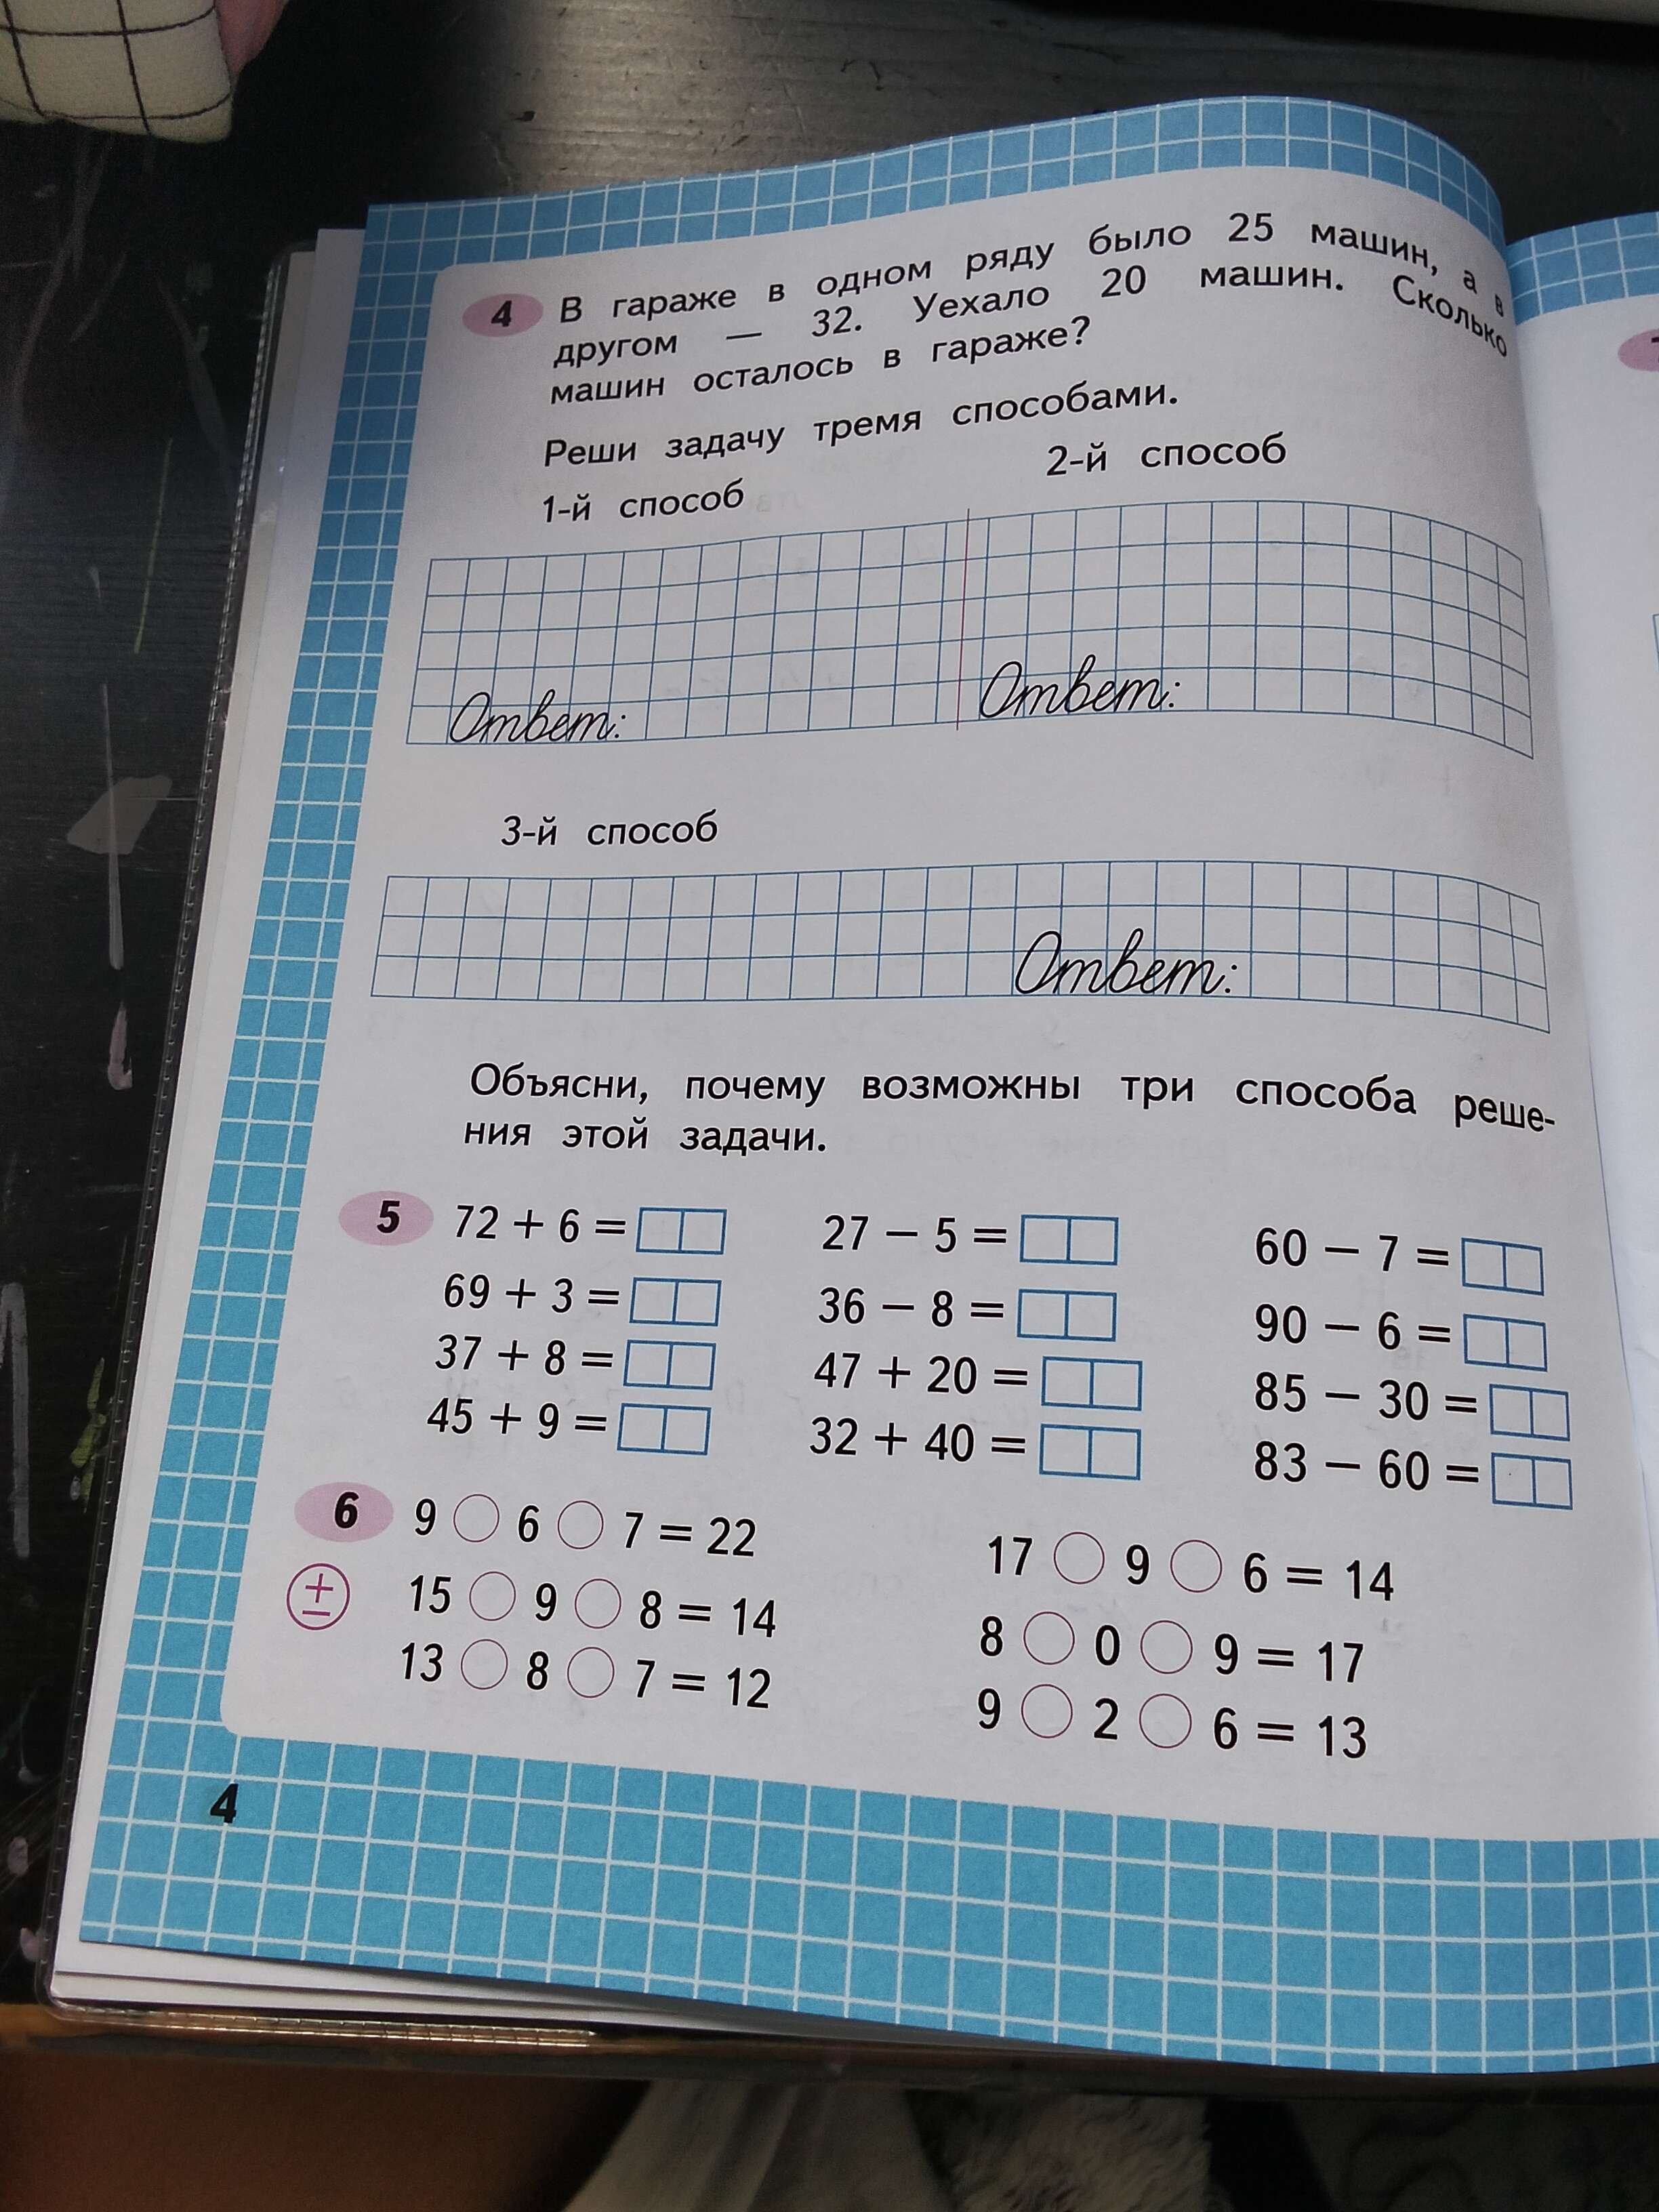 4 В гараже в одном ряду было 25 машин, а в
другом — 32. Уехало 20 машин. Сколько
машин осталось в гараже?
Реши задачу тремя способами.
1-й способ 2-й способ
Ответ: Ответ:
3-й способ
Ответ:
Объясни, почему возможны три способа реше-
ния этой задачи.
5 72 + 6 = 27 − 5 = 60 − 7 =
69 + 3 = 36 − 8 = 90 − 6 =
37 + 8 = 47 + 20 = 85 − 30 =
45 + 9 = 32 + 40 = 83 − 60 =
6 9 ○ 6 ○ 7 = 22 17 ○ 9 ○ 6 = 14
± 15 ○ 9 ○ 8 = 14 8 ○ 0 ○ 9 = 17
13 ○ 8 ○ 7 = 12 9 ○ 2 ○ 6 = 13
4